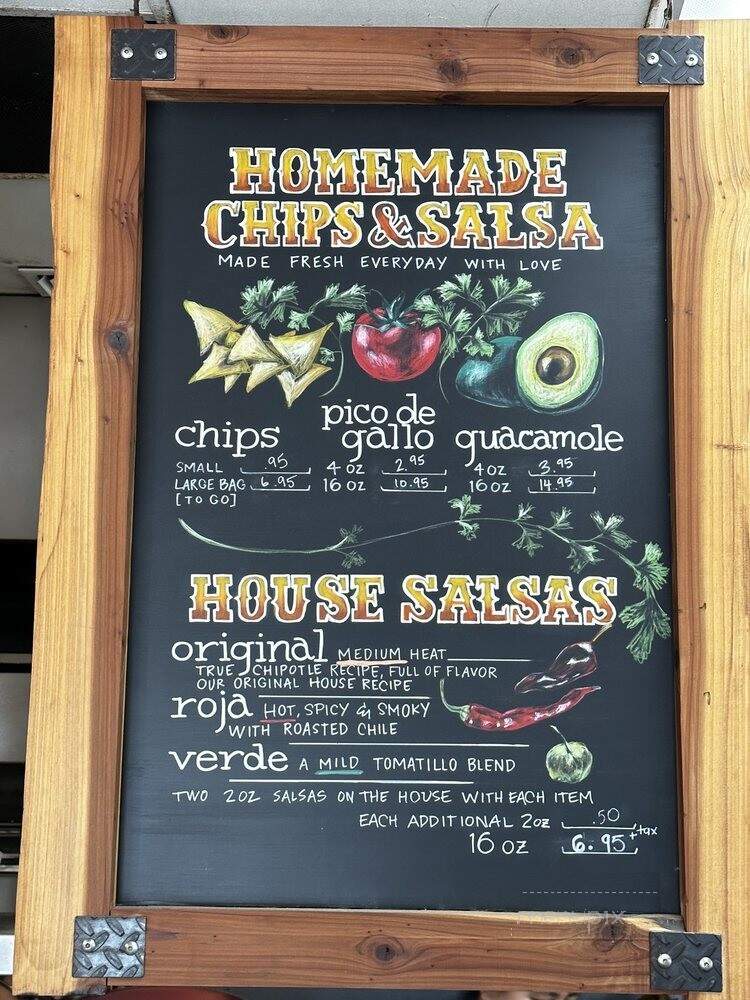 HOMEMADE
CHIPS & SALSA
MADE FRESH EVERYDAY WITH LOVE
chips
SMALL .95
LARGE BAG 6.95
[TO GO]
pico de
gallo
4 OZ 2.95
16 OZ 10.95
guacamole
4 OZ 3.95
16 OZ 14.95
HOUSE SALSAS
original MEDIUM HEAT
TRUE CHIPOTLE RECIPE, FULL OF FLAVOR
OUR ORIGINAL HOUSE RECIPE
roja HOT, SPICY & SMOKY
WITH ROASTED CHILE
verde A MILD TOMATILLO BLEND
TWO 2OZ SALSAS ON THE HOUSE WITH EACH ITEM
EACH ADDITIONAL 2oz .50
16 oz 6.95 +tax